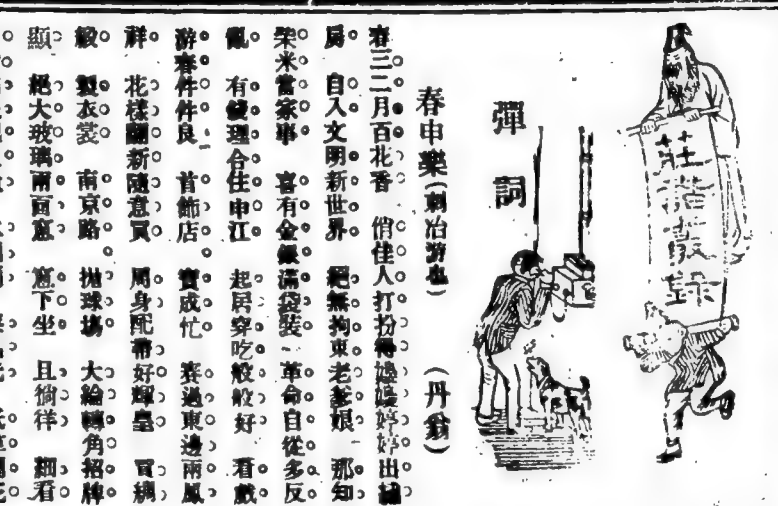 莊諧叢錄
彈詞
春申樂(刺冶游也)(丹翁)
春三二月百花香 俏佳人打扮得嬝嬝婷婷出
房 自入文明新世界 絕無拘束老爹娘 那知
柴米當家事 喜有金銀滿袋裝 革命自從多反
亂 有錢理合住申江 起居穿吃般般好 看戲
游春件件良 首飾店 寶成忙 賽過東邊兩鳳
祥 花樣翻新隨意買 周身配帶好輝皇 買綢
緞 製衣裳 南京路 拋球場 大綸轉角招牌
顯 絕大玻璃兩面窓 窓下坐 且徜徉 細看